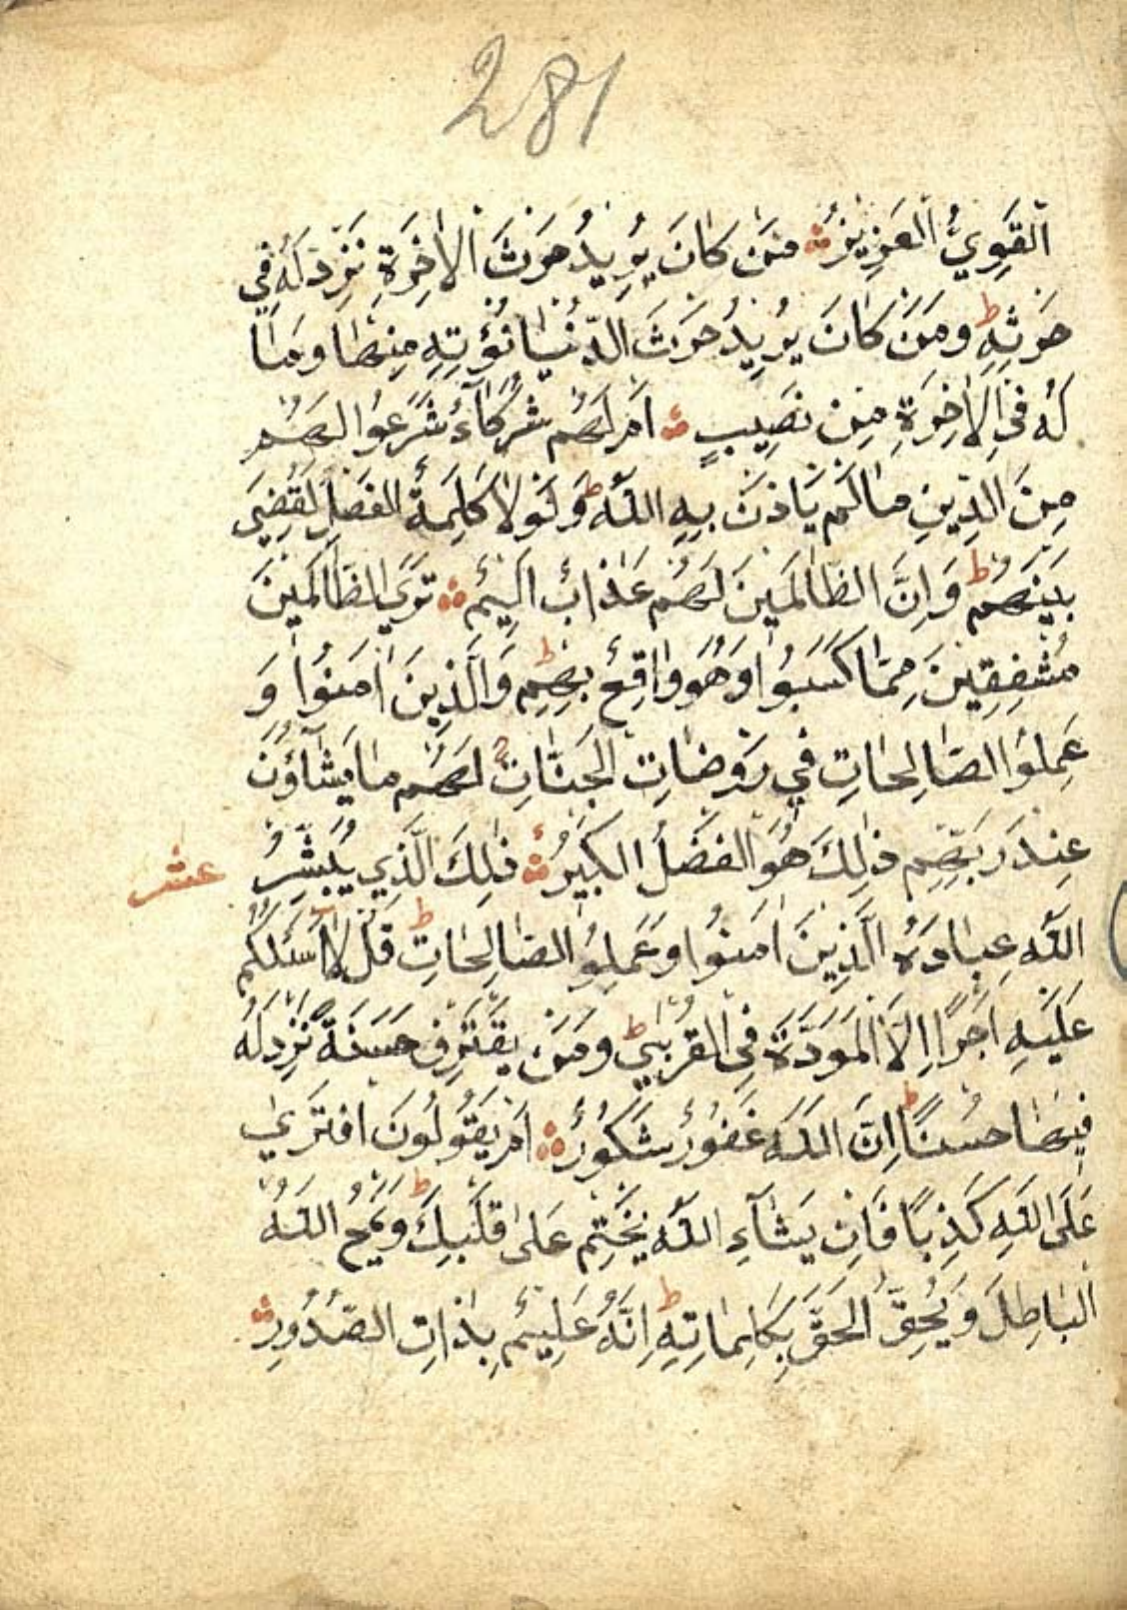 281
الْقَوِيُّ الْعَزِيزُ ۞ مَنْ كَانَ يُرِيدُ حَرْثَ الْاٰخِرَةِ نَزِدْ لَهُ فِي
حَرْثِهِ ط وَمَنْ كَانَ يُرِيدُ حَرْثَ الدُّنْيَا نُؤْتِهِ مِنْهَا وَمَا
لَهُ فِي الْاٰخِرَةِ مِنْ نَصِيبٍ ۞ اَمْ لَهُمْ شُرَكَاءُ شَرَعُوا لَهُمْ
مِنَ الدِّينِ مَا لَمْ يَاْذَنْ بِهِ اللّٰهُ ط وَلَوْلَا كَلِمَةُ الْفَصْلِ لَقُضِيَ
بَيْنَهُمْ ط وَاِنَّ الظَّالِمِينَ لَهُمْ عَذَابٌ اَلِيمٌ ۞ تَرَى الظَّالِمِينَ
مُشْفِقِينَ مِمَّا كَسَبُوا وَهُوَ وَاقِعٌ بِهِمْ ط وَالَّذِينَ اٰمَنُوا وَ
عَمِلُوا الصَّالِحَاتِ فِي رَوْضَاتِ الْجَنَّاتِ لَهُمْ مَا يَشَاؤُنَ
عِنْدَ رَبِّهِمْ ذٰلِكَ هُوَ الْفَضْلُ الْكَبِيرُ ۞ ذٰلِكَ الَّذِي يُبَشِّرُ عشر
اللّٰهُ عِبَادَهُ الَّذِينَ اٰمَنُوا وَعَمِلُوا الصَّالِحَاتِ ط قُلْ لَا اَسْئَلُكُمْ
عَلَيْهِ اَجْرًا اِلَّا الْمَوَدَّةَ فِي الْقُرْبٰى ط وَمَنْ يَقْتَرِفْ حَسَنَةً نَزِدْ لَهُ
فِيهَا حُسْنًا ط اِنَّ اللّٰهَ غَفُورٌ شَكُورٌ ۞ اَمْ يَقُولُونَ افْتَرٰى
عَلَى اللّٰهِ كَذِبًا فَاِنْ يَشَاءِ اللّٰهُ يَخْتِمْ عَلٰى قَلْبِكَ ط وَيَمْحُ اللّٰهُ
الْبَاطِلَ وَيُحِقُّ الْحَقَّ بِكَلِمَاتِهِ ط اِنَّهُ عَلِيمٌ بِذَاتِ الصُّدُورِ ۞